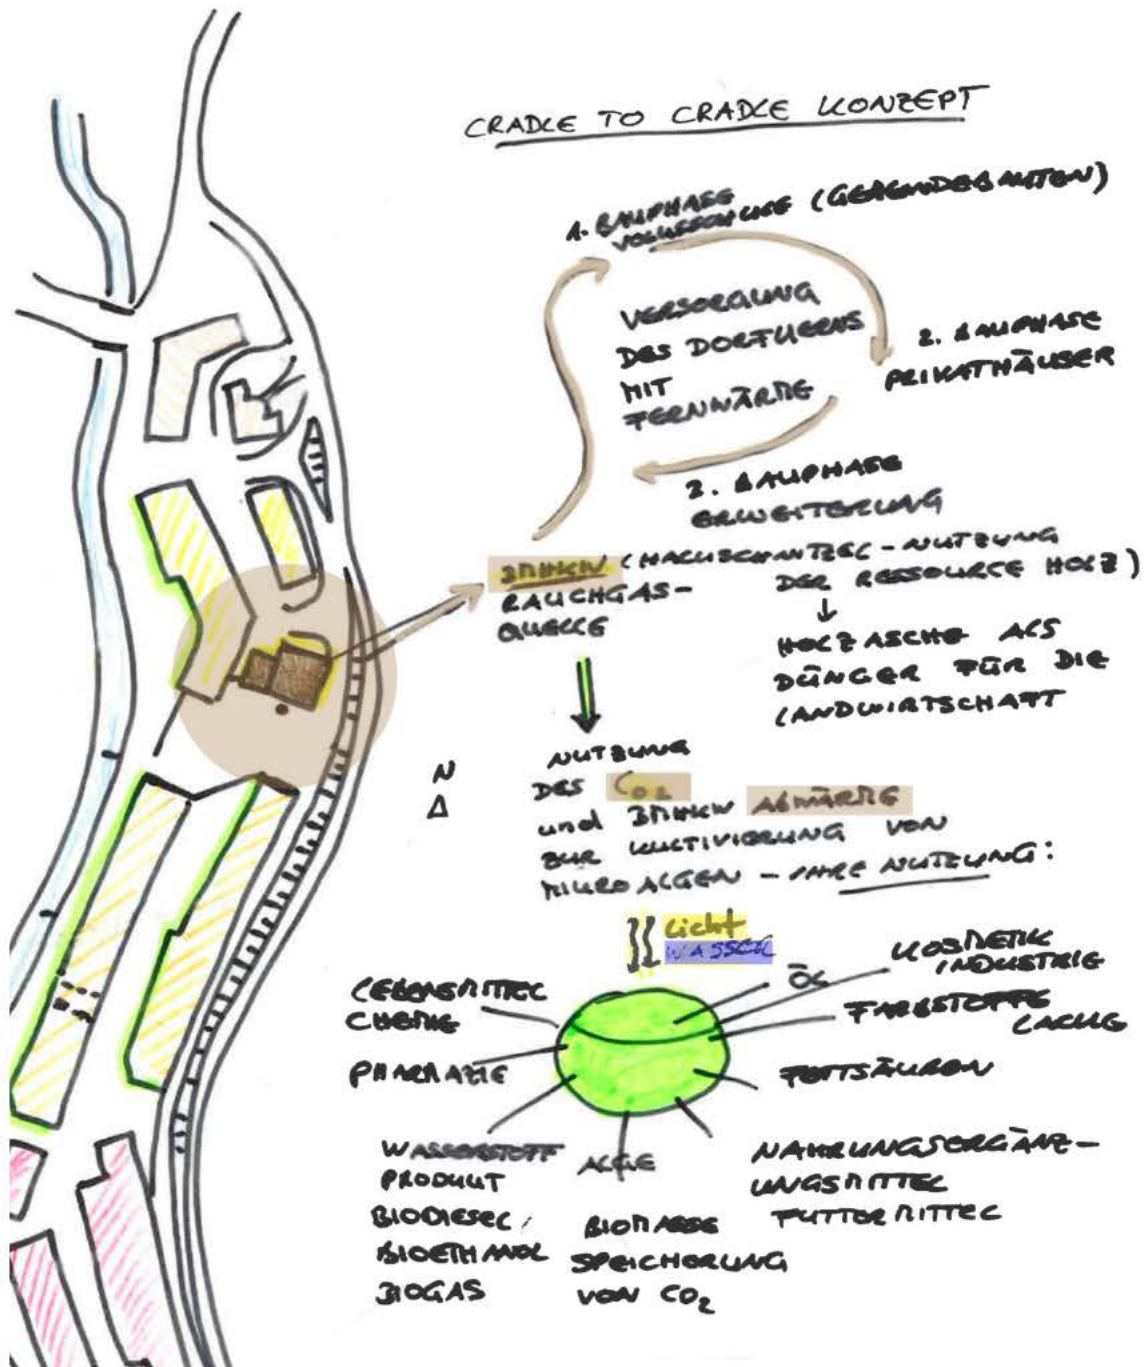 CRADLE TO CRADLE KONZEPT
1. BAUPHASE
VOLKSSCHULE (GEMEINDEBAUTEN)
VERSORGUNG
DES DORFKERNS
MIT
FERNWÄRME
2. BAUPHASE
PRIVATHÄUSER
3. BAUPHASE
ERWEITERUNG
BMHKW (HACKSCHNITZEL - NUTZUNG
DER RESSOURCE HOLZ)
RAUCHGAS-
QUELLE
↓
HOLZASCHE ALS
DÜNGER FÜR DIE
LANDWIRTSCHAFT
N
Δ
NUTZUNG
DES CO2
und BMHKW ABWÄRME
ZUR KULTIVIERUNG VON
MIKROALGEN - IHRE NUTZUNG:
Licht
WASSER
ÖL
KOSMETIK
INDUSTRIE
FARBSTOFFE
LACKE
FETTSÄUREN
NAHRUNGSERGÄNZ-
UNGSMITTEL
FUTTERMITTEL
LEBENSMITTEL
CHEMIE
PHARMAZIE
WASSERSTOFF
PRODUKT
BIODIESEL,
BIOETHANOL
BIOGAS
ALGE
BIOMASSE
SPEICHERUNG
VON CO2